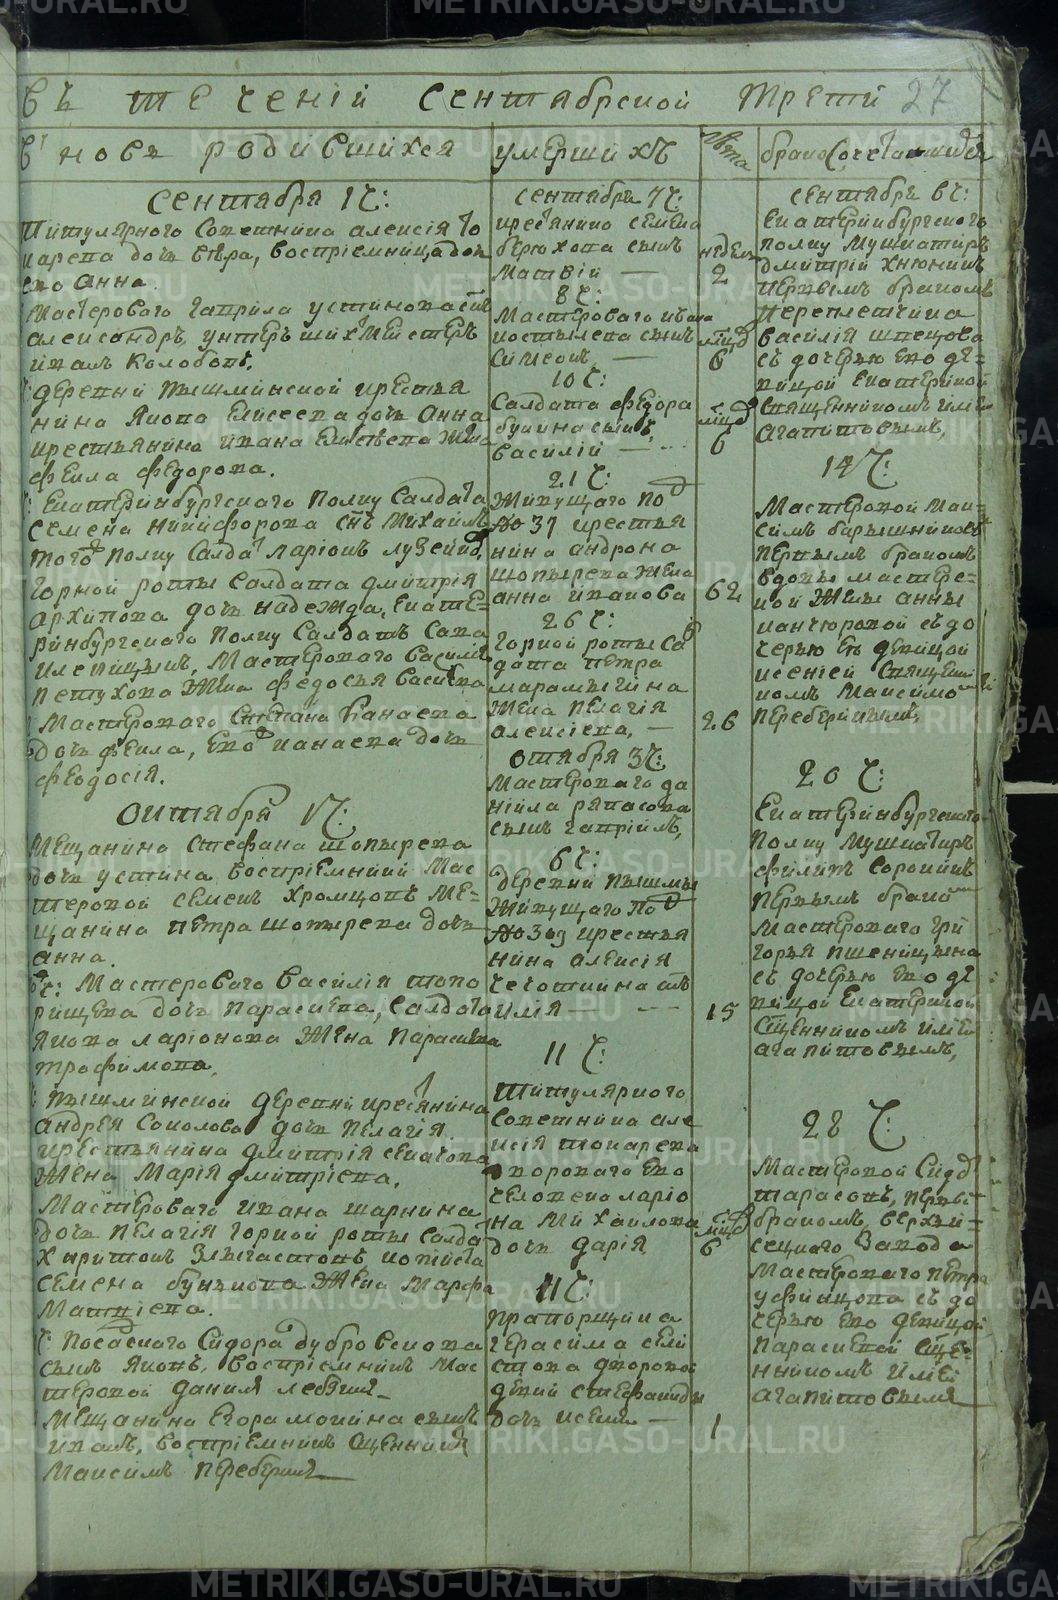 въ течении сентябрской трети 27
внове родившихся
сентября 1 ч:
титулярного советника алексія то
карева дочь вера, воспріемница дочь
ево анна.
Мастерового гаврила устинова сынъ
александръ, унтеръ шихтмейстеръ
иванъ Колобовъ.
деревни пышминской крестья
нина якова елисеева дочь анна
крестьянина ивана елисеева жена
фекла федорова.
екатеринбургского полку салдата
семена никифорова сынъ михаилъ
того полку салдатъ ларіонъ
горной роты салдата дмитрия
архипова дочь надежда, екате-
ринбургского полку салдатъ сава
Мастерового василія
петухова жена федосья васильева
Мастерового степана Канаева
дочь фекла, ево канаева дочь
феодосія.
октября 1 ч:
Мещанина стефана шопырева
дочь устина воспріемники мас
теровой семенъ хромцовъ ме-
щанина петра шопырева дочь
анна.
ч: Мастерового василія топо
рищева дочь параскева, салдата
якова ларіонова жена параскева
трофимова.
пышминской деревни крестянина
андрея соколова дочь пелагія
крестьянина дмитрія
жена марія дмитріева.
Мастерового ивана шаркина
дочь пелагія горной роты салдатъ
харитонъ
семена жена марфа
матвіева.
посацкого сидора дубровскова
сынъ яковъ, воспріемникъ мас
теровой данила
Мещанина егора мокина сынъ
иванъ, воспріемникъ священникъ
максимъ переберинъ
умершихъ
сентября 7 ч:
крестянина семена
берюхова сынъ
матвій —
8 ч:
мастерового ивана
костылева сынъ
симеонъ —
10 ч:
салдата федора
букина сынъ
василій —
21 ч:
живущаго по
крестья
нина андрона
шопырева жена
анна иванова
26 ч:
горной роты сал
дата петра
жена пелагія
алексіева, —
октября 3 ч:
мастерового да
нійла
сынъ гаврійлъ,
6 ч:
деревни пышмы
живущаго по
крестья
нина алексія
чечоткина
илія —
11 ч:
титулярного
советника але
ксія токарева
дворового ево
человека ларіо
на михайлова
дочь дарія
11 ч:
прапорщика
герасима сели
стова дворовой
девки стефаниды
дочь ксения —
лета
недель
2
мцъ
6
мцъ
6
62
26
15
мцъ
6
1
бракосочетавшихся
сентября 6 ч:
екатеринбургского
полку мушкатиръ
дмитрій хнюнинъ
первымъ бракомъ
переплетчика
василія шпецова
съ дочерью ево де-
вицой екатериной
священникомъ иліею
агапитовымъ,
14 ч:
Мастеровой мак-
симъ барышниковъ
первымъ бракомъ
вдовы мастере-
кой жены анны
канчюровой съ до
черью ея девицой
ксеніей священ
комъ максимомъ
переберинымъ,
20 ч:
екатеринбургского
полку мушкатиръ
филипъ сорокинъ
первымъ бракомъ
мастерового гри
горья пшеницына
съ дочерью ево де
вицой екатериной
священникомъ иліею
агапитовымъ,
28 ч:
Мастеровой сидоръ
тарасовъ, первы
бракомъ, верхъи-
сецкого завода
мастерового петра
съ до
черью ево девицой
параскевой священ-
никомъ иліею
агапитовымъ